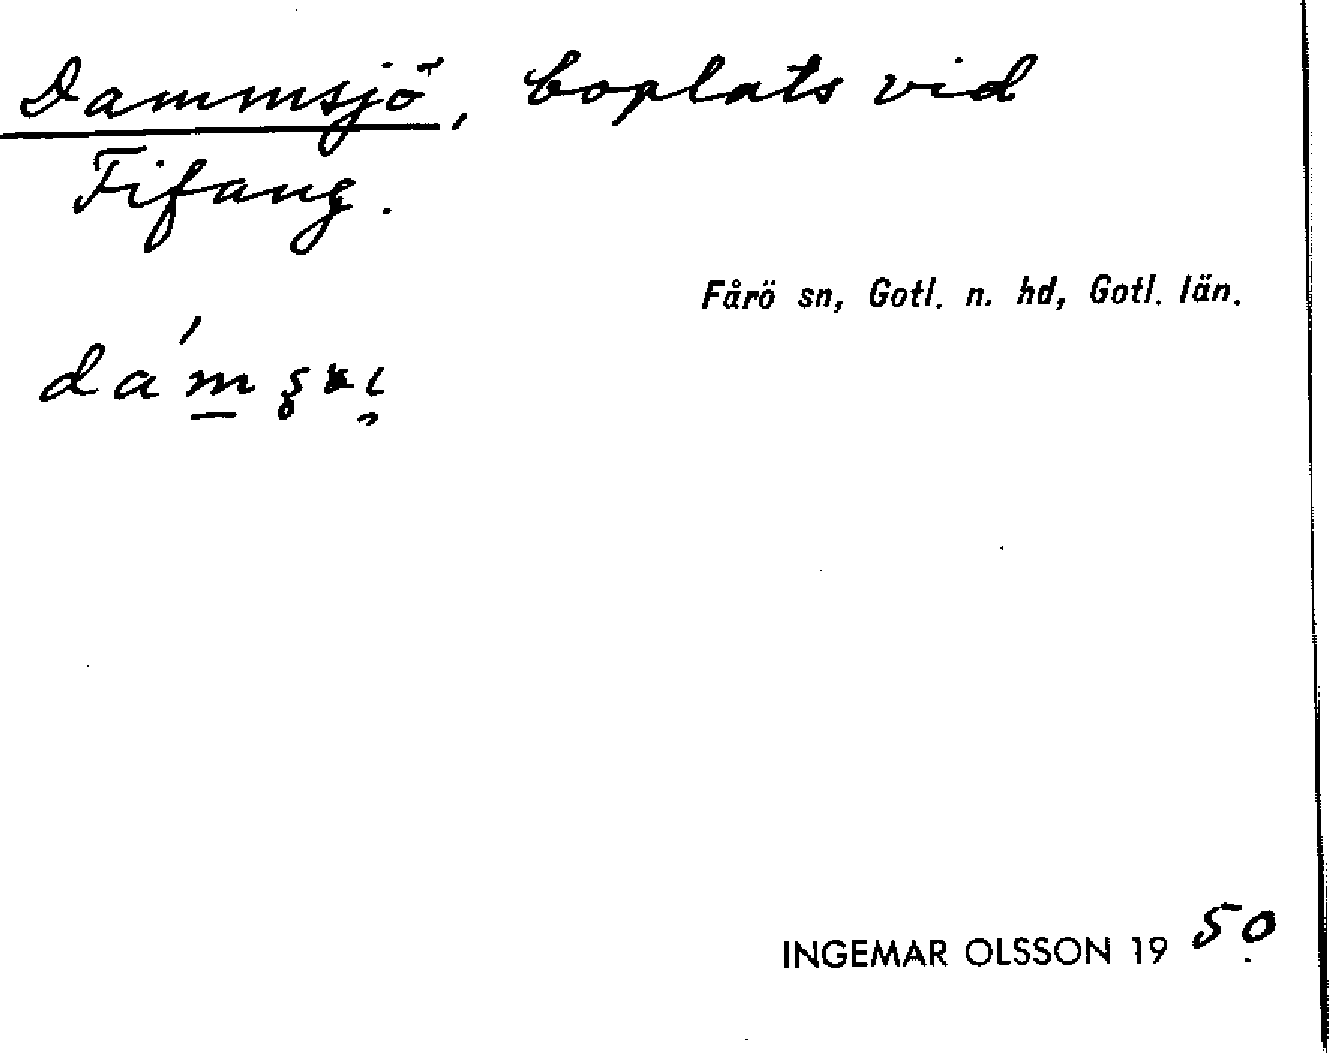 Dammsjö, boplats vid
Fifang.
Fårö sn, Gotl. n. hd, Gotl. län.
INGEMAR OLSSON 1950